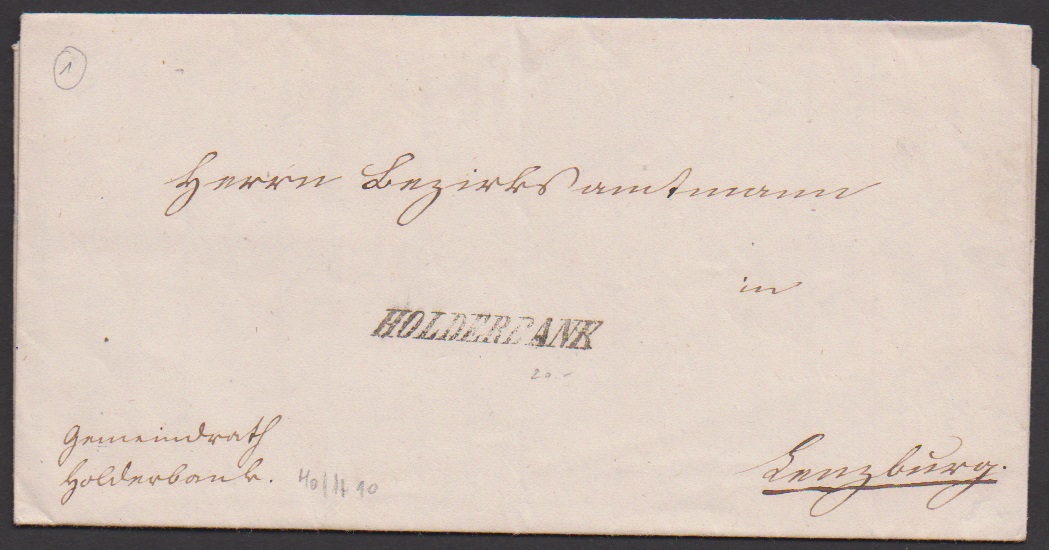 1
Herrn Bezirksamtmann
in
HOLDERBANK
20.-
Gemeindrath
Holderbank.
Lenzburg.